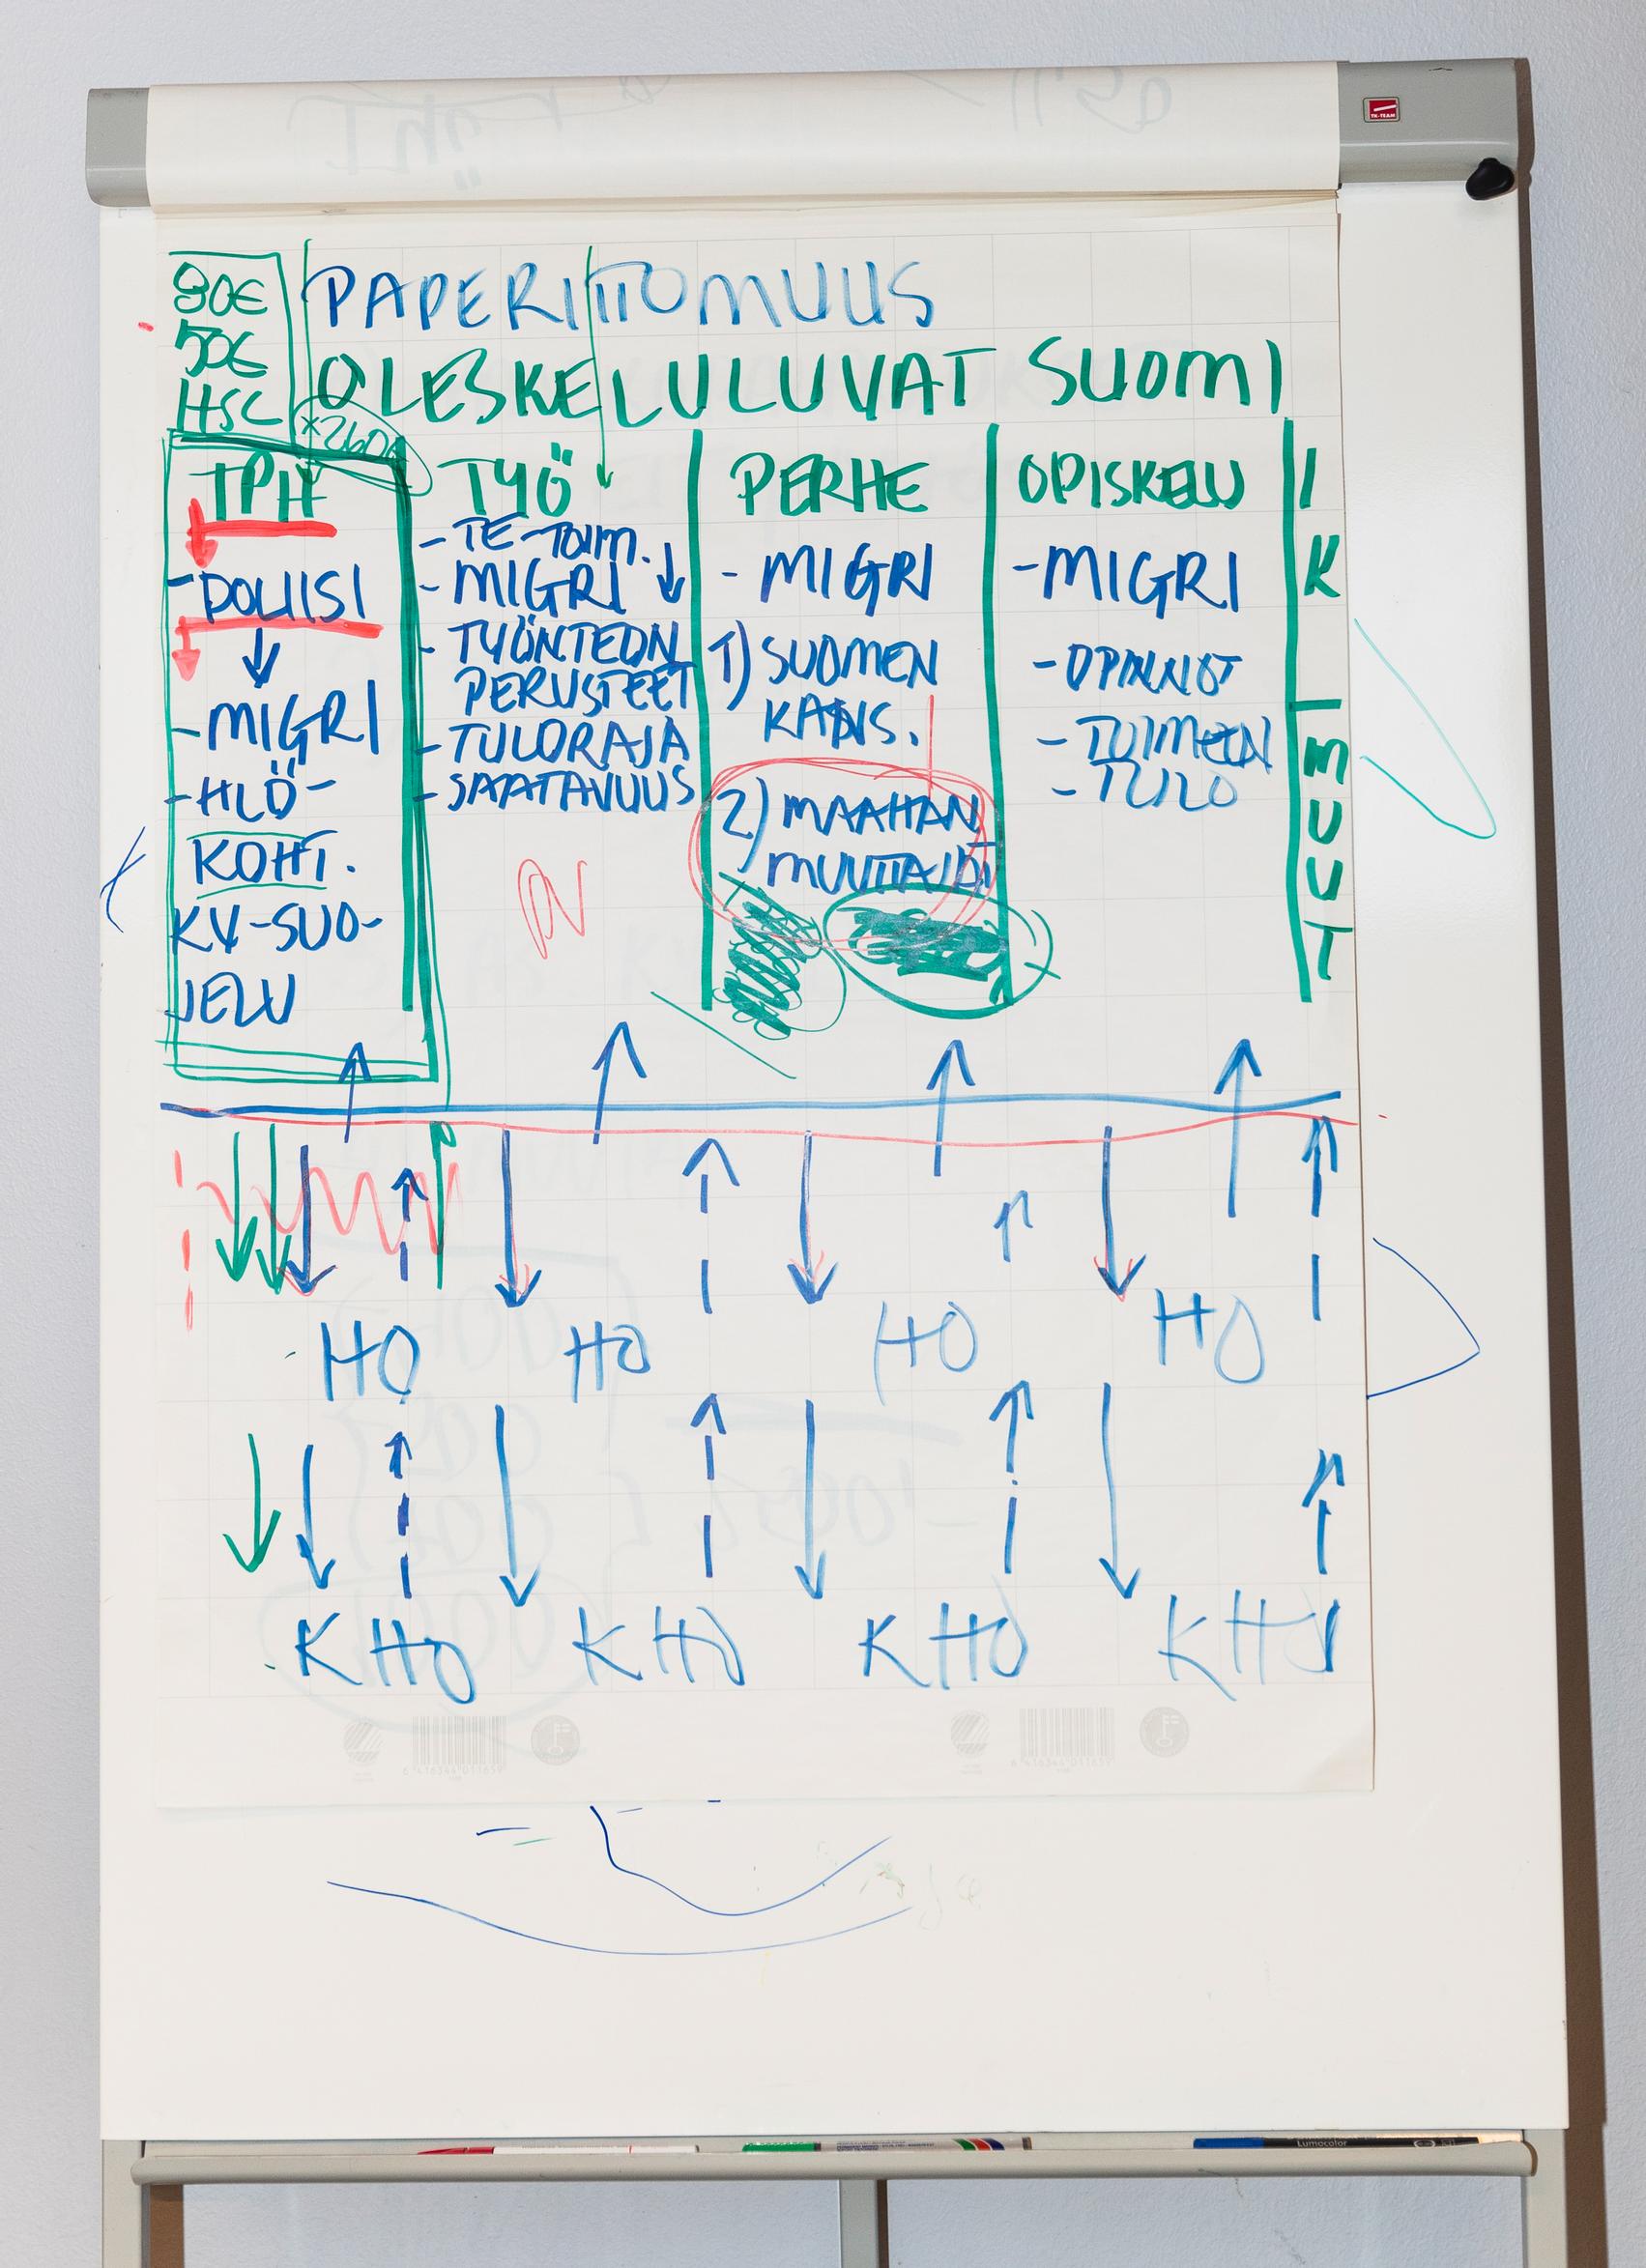 PAPERITTOMUUS
OLESKELULUVAT SUOMI
50€
HSL
TPH
- POLIISI
- MIGRI
- HLÖ-
KOHT.
KV-SUO-
JELU
TYÖ
- TE-TOIM.
- MIGRI
- TYÖNTEON
PERUSTEET
- TULORAJA
- SAATAVUUS
PERHE
- MIGRI
1) SUOMEN
KANS.
2) MAAHAN
MUUTTAJAT
OPISKELU
- MIGRI
- OPINNOT
- TOIMEEN
- TULO
MUUT
HO HO HO HO
KHO KHO KHO KHO
TK-TEAM
Lumocolor